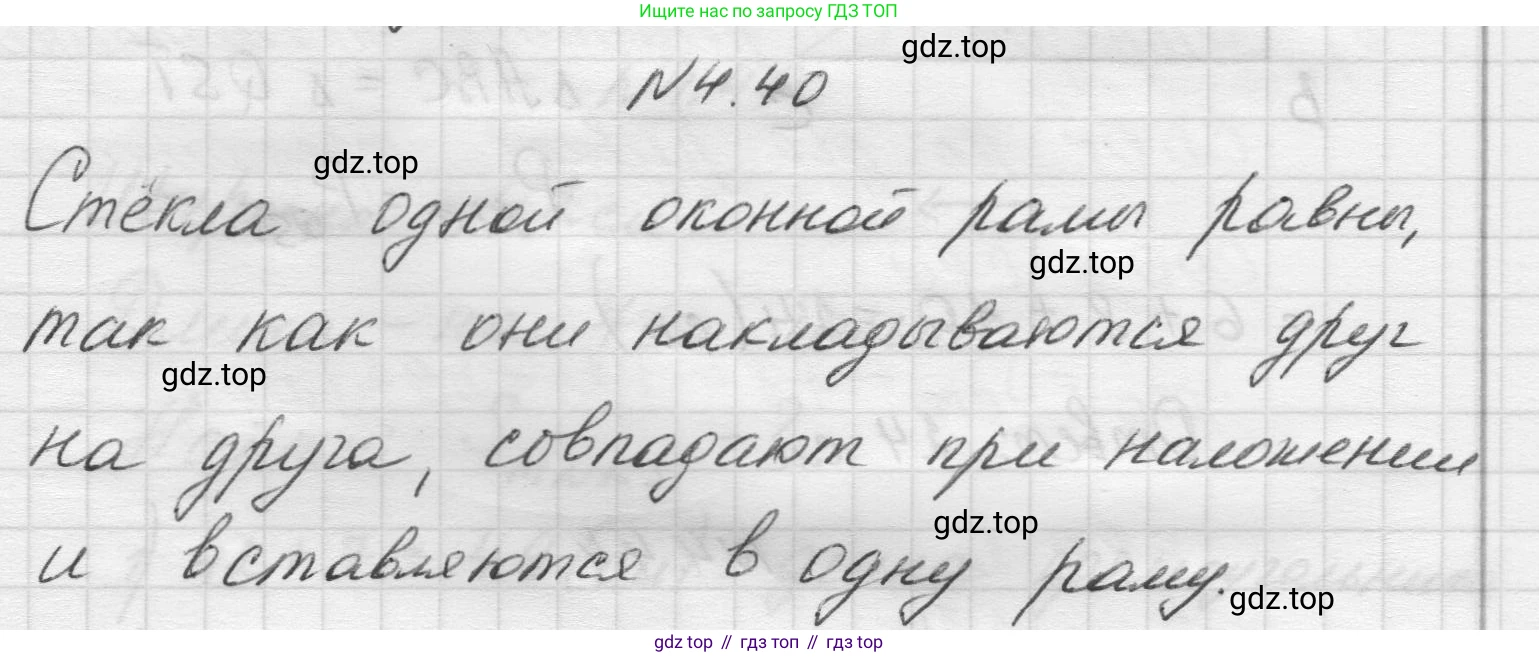 Ищите нас по запросу ГДЗ ТОП
gdz.top
N4.40
gdz.top
Стёкла одной оконной рамы равны,
gdz.top
так как они накладываются друг
gdz.top
на друга, совпадают при наложении
gdz.top
и вставляются в одну раму.
gdz.top
gdz top // гдз топ // гдз top